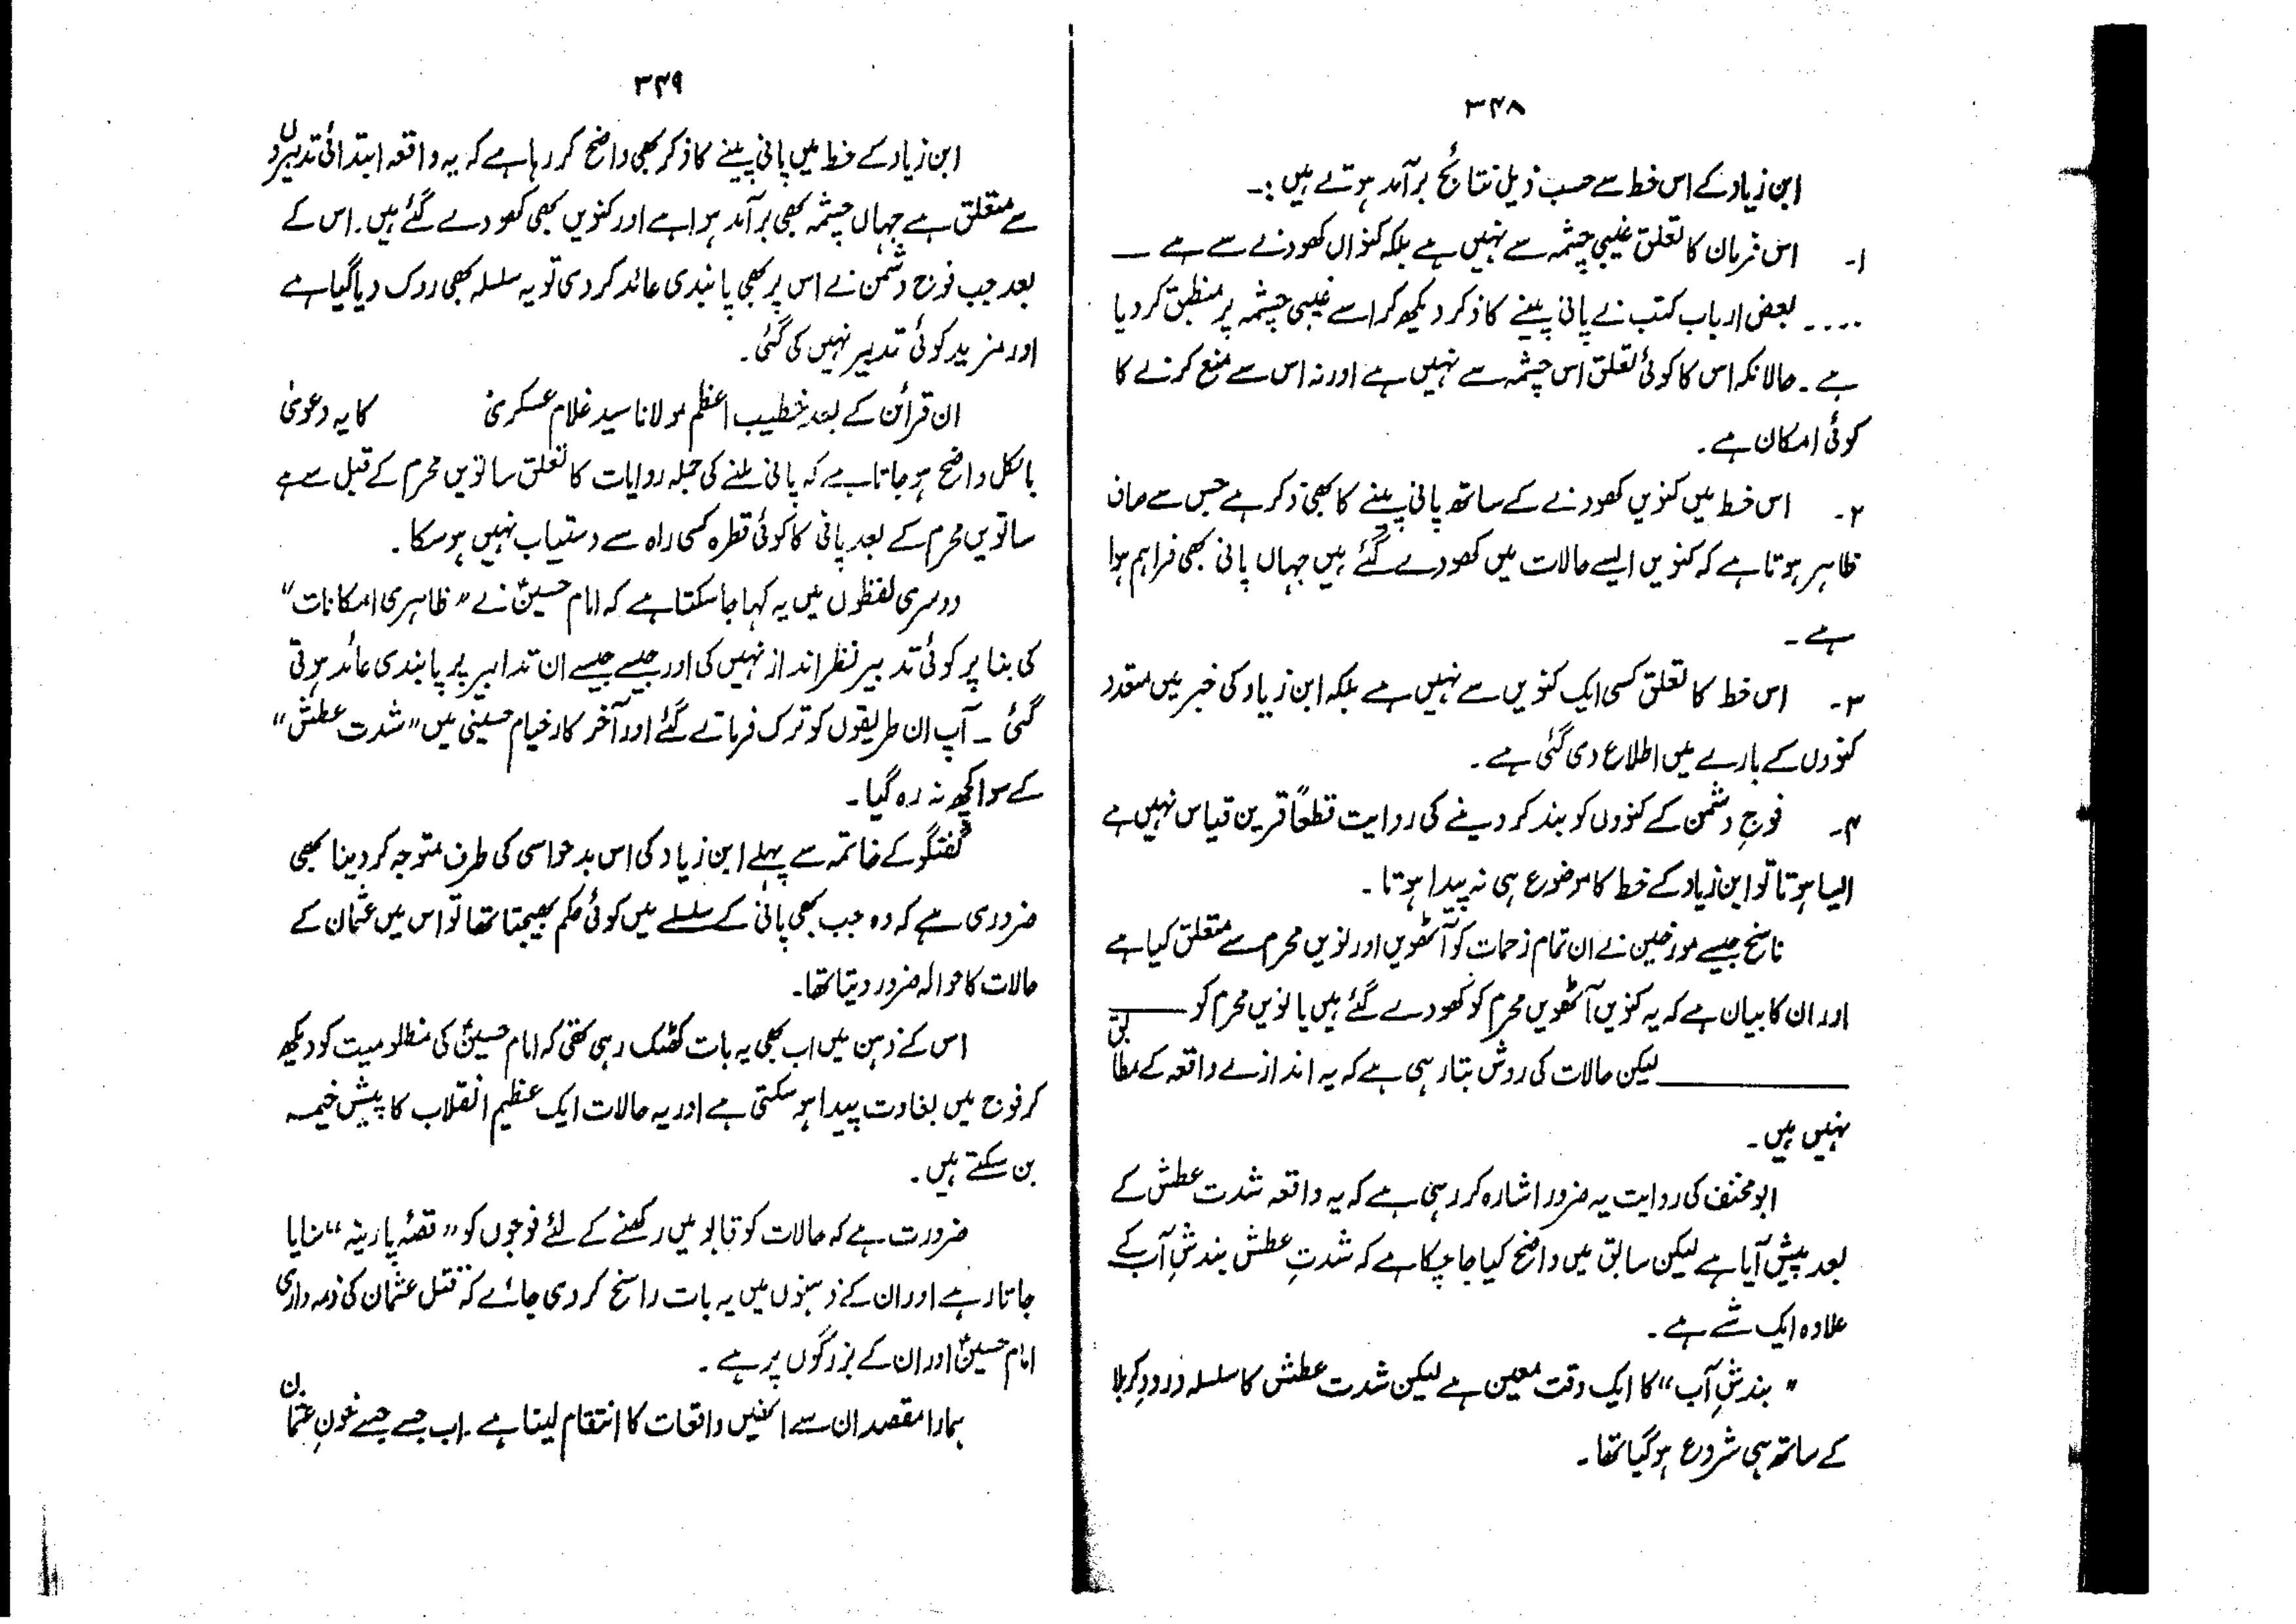 ۳۴۸
ابن زیاد کے اس خط سے حسب ذیل نتائج برآمد ہوتے ہیں :۔
۱۔ اس فرمان کا تعلق غیبی چشمہ سے نہیں ہے بلکہ کنواں کھودنے سے ہے ــ
۔۔۔۔ بعض ارباب کتب نے پانی پینے کا ذکر دیکھ کر اسے غیبی چشمہ پر منطبق کر دیا
ہے ۔ حالانکہ اس کا کوئی تعلق اس چشمہ سے نہیں ہے اور نہ اس سے منع کرنے کا
کوئی امکان ہے ۔
۲۔ اس خط میں کنویں کھودنے کے ساتھ پانی پینے کا بھی ذکر ہے جس سے صاف
ظاہر ہوتا ہے کہ کنویں ایسے حالات میں کھودے گئے ہیں جہاں پانی بھی فراہم ہوا
ہے ۔
۳۔ اس خط کا تعلق کسی ایک کنویں سے نہیں ہے بلکہ ابن زیاد کی خبر میں متعدد
کنووں کے بارے میں اطلاع دی گئی ہے ۔
۴۔ فوجِ دشمن کے کنووں کو بند کر دینے کی روایت قطعاً قرین قیاس نہیں ہے
ایسا ہوتا تو ابن زیاد کے خط کا موضوع ہی نہ پیدا ہوتا ۔
ناسخ جیسے مورخین نے ان تمام زحمات کو آٹھویں اور نویں محرم سے متعلق کیا ہے
اور ان کا بیان ہے کہ یہ کنویں آٹھویں محرم کو کھودے گئے ہیں یا نویں محرم کو ــــــ
ــــــــــــ لیکن حالات کی روش بتا رہی ہے کہ یہ اندازے واقعہ کے مطابق
نہیں ہیں ۔
ابو مخنف کی روایت یہ ضرور اشارہ کر رہی ہے کہ یہ واقعہ شدت عطش کے
بعد پیش آیا ہے لیکن سابق میں واضح کیا جا چکا ہے کہ شدتِ عطش بندشِ آب کے
علاوہ ایک شے ہے ۔
" بندشِ آب " کا ایک وقت معین ہے لیکن شدت عطش کا سلسلہ ورودِ کربلا
کے ساتھ ہی شروع ہو گیا تھا ۔
۳۴۹
ابن زیاد کے خط میں پانی پینے کا ذکر بھی واضح کر رہا ہے کہ یہ واقعہ ابتدائی تدبیروں
سے متعلق ہے جہاں چشمہ بھی برآمد ہوا ہے اور کنویں بھی کھودے گئے ہیں ۔ اس کے
بعد جب فوج دشمن نے اس پر بھی پابندی عائد کر دی تو یہ سلسلہ بھی روک دیا گیا ہے
اور مزید کوئی تدبیر نہیں کی گئی ۔
ان قرائن کے بعد خطیب اعظم مولانا سید غلام عسکری کا یہ دعویٰ
بالکل واضح ہو جاتا ہے کہ پانی ملنے کی جملہ روایات کا تعلق ساتویں محرم کے قبل سے ہے
ساتویں محرم کے بعد پانی کا کوئی قطرہ کسی راہ سے دستیاب نہیں ہو سکا ۔
دوسری لفظوں میں یہ کہا جا سکتا ہے کہ امام حسینؑ نے " ظاہری امکانات "
کی بنا پر کوئی تدبیر نظر انداز نہیں کی اور جیسے جیسے ان تدابیر پر پابندی عائد ہوتی
گئی ۔ آپ ان طریقوں کو ترک فرماتے گئے اور آخر کار خیام حسینی میں " شدت عطش "
کے سوا کچھ نہ رہ گیا ۔
گفتگو کے خاتمہ سے پہلے ابن زیاد کی اس بدحواسی کی طرف متوجہ کر دینا بھی
ضروری ہے کہ وہ جب بھی پانی کے سلسلے میں کوئی حکم بھیجتا تھا تو اس میں عثمان کے
حالات کا حوالہ ضرور دیتا تھا ۔
اس کے ذہن میں اب بھی یہ بات کھٹک رہی تھی کہ امام حسینؑ کی مظلومیت کو دیکھ
کر فوج میں بغاوت پیدا ہو سکتی ہے اور یہ حالات ایک عظیم انقلاب کا پیش خیمہ
بن سکتے ہیں ۔
ضرورت ہے کہ حالات کو قابو میں رکھنے کے لئے فوجوں کو " قصۂ پارینہ " سنایا
جاتا رہے اور ان کے ذہنوں میں یہ بات راسخ کر دی جائے کہ قتل عثمان کی ذمہ داری
امام حسینؑ اور ان کے بزرگوں پر ہے ۔
ہمارا مقصد ان سے انھیں واقعات کا انتقام لینا ہے ۔ اب جسے جسے خونِ عثمان